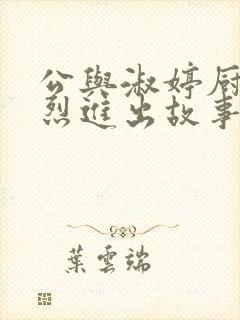 公與淑婷厨
烈進出故事
葉雲端